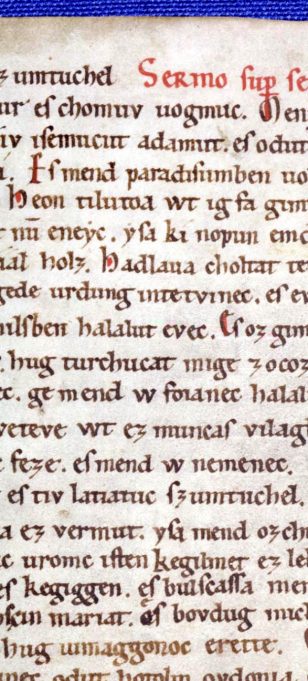 ȝ umtuchel Sermo sup̄ se
ur es chomuv uogmuc. Men
iv isemucut adamut. es odut
i. Es mend paradisumben uo
Heon tilutoa wt ig fa gim
t nū eneyc. ysa ki nopun em
aal holz. Hadlaua choltat te
gede urdung intetvinec. es ev
hilsben halalut evec. Es oz gim
hug turchucat mige zocoz
ec. ge mend w foianec halal
veteve wt eȝ muncas vilag
feze. es mend w nemenec.
es tiv latiatuc szumtuchel.
a eȝ vermut. ysa mend oȝch
c uromc isten kegilmet eȝ le
es kegiggen. es bulscassa men
mariat. es bovdug mich
hug uimaggonoc erette.
odut hotolm ovdonia